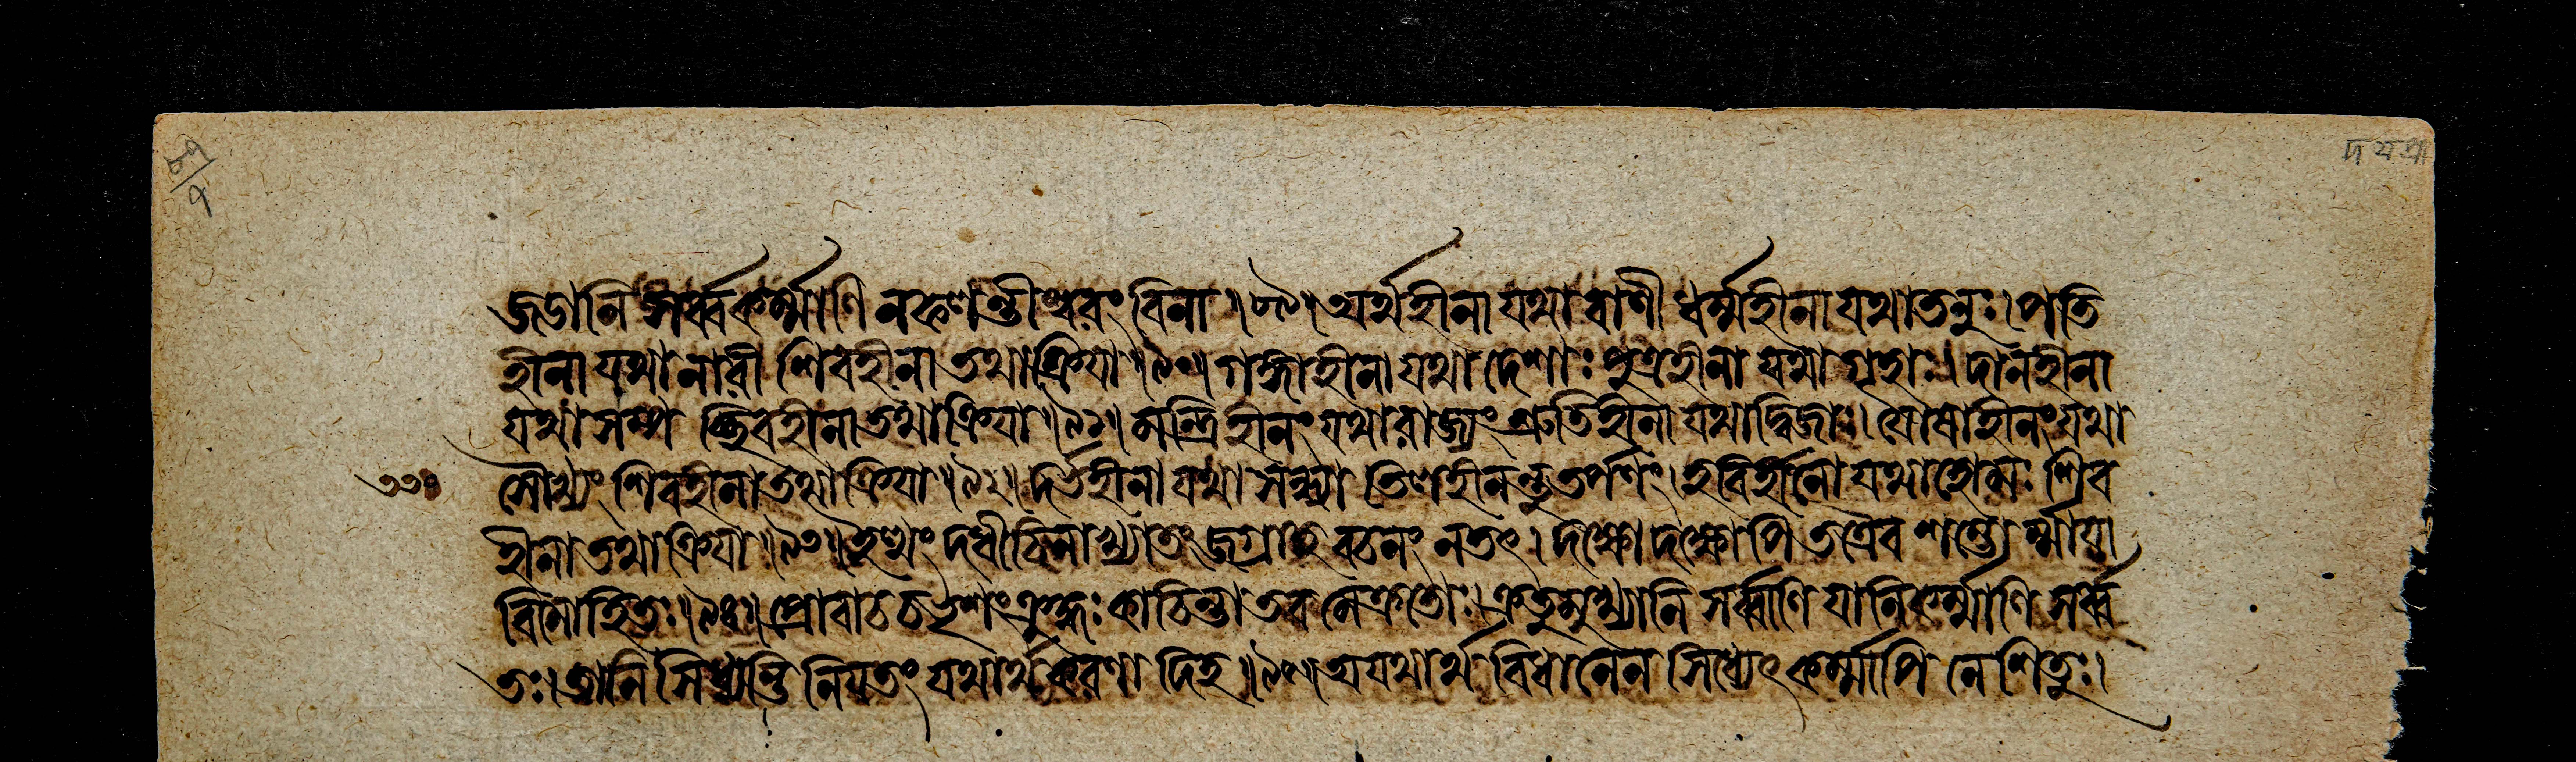 ৮৭/৭
জডানি সর্ব্বকর্ম্মাণি ন ফলন্তীশ্বরং বিনা।৮৯। অর্থহীনা যথা বাণী ধর্ম্মহীনা যথা তনুঃ। পতি
হীনা যথা নারী শিবহীনা তথা ক্রিয়া।৯০। গঙ্গাহীনা যথা দেশাঃ পুত্রহীনা যথা গৃহাঃ। দানহীনা
যথা সম্পচ্ছিবহীনা তথা ক্রিয়া।৯১। মন্ত্রিহীনং যথা রাজ্যং শ্রুতিহীনা যথা দ্বিজাঃ। যোষাহীনং যথা
সৌখ্যং শিবহীনা তথা ক্রিয়া।৯২। দর্ভহীনা যথা সন্ধ্যা তিলহীনন্তু তর্পণং। হবির্হীনো যথা হোমঃ শিব
হীনা তথা ক্রিয়া।৯৩। ইত্থং দধীচিনাখ্যাতং জগ্রাহ বচনং ন তৎ। দক্ষো দক্ষোপি তত্রৈব শম্ভোর্ম্মায়া
বিমোহিতঃ।৯৪। প্রোবাচ চ ভৃশং ক্রুদ্ধঃ কা চিন্তা তব মে ক্রতোঃ। ক্রতুমুখ্যানি সর্ব্বাণি যানি কর্ম্মাণি সর্ব্ব
তঃ। তানি সিধ্যন্তি নিয়তং যথার্থকরণাদিহ।৯৫। অযথার্থবিধানেন সিধ্যেৎ কর্ম্মাপি নেশিতুঃ।